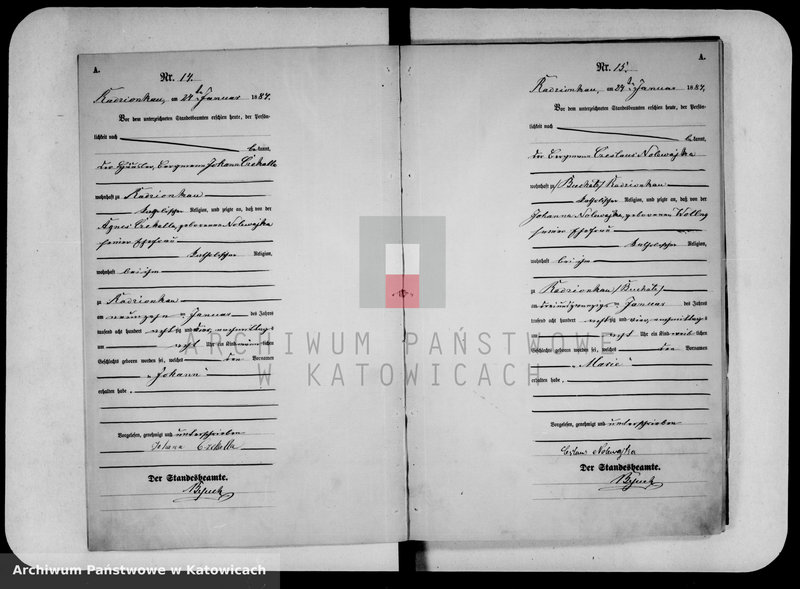 A.
Nr. 14.
Radzionkau, am 24 t. Januar 1884.
Vor dem unterzeichneten Standesbeamten erschien heute, der Persön-
lichkeit nach
bekannt,
der Häusler, Bergmann Johann Czekalla
wohnhaft zu Radzionkau
katholischer Religion, und zeigte an, daß von der
Agnes Czekalla, geborenen Nolewajka
seiner Ehefrau
katholischer Religion,
wohnhaft bei ihm
zu Radzionkau
am neunzehn ten Januar des Jahres
tausend acht hundert achtzig und vier, nachmittags
um acht Uhr ein Kind männlichen
Geschlechts geboren worden sei, welches den Vornamen
„Johann“
erhalten habe.
Vorgelesen, genehmigt und unterschrieben
Johann Czekalla
Der Standesbeamte.
A.
Nr. 15.
Radzionkau, am 24 t. Januar 1884.
Vor dem unterzeichneten Standesbeamten erschien heute, der Persön-
lichkeit nach
bekannt,
der Bergmann Czeslaus Nolewajka
wohnhaft zu /Buchatz/ Radzionkau
katholischer Religion, und zeigte an, daß von der
Johanna Nolewajka, geborenen
seiner Ehefrau
katholischer Religion,
wohnhaft bei ihm
zu Radzionkau /Buchatz/
am dreiundzwanzigs ten Januar des Jahres
tausend acht hundert achtzig und vier, nachmittags
acht Uhr ein Kind weiblichen
Geschlechts geboren worden sei, welches den Vornamen
„Marie“
erhalten habe.
Vorgelesen, genehmigt und unterschrieben
Nolewajka
Der Standesbeamte.
ARCHIWUM PAŃSTWOWE
W KATOWICACH
Archiwum Państwowe w Katowicach